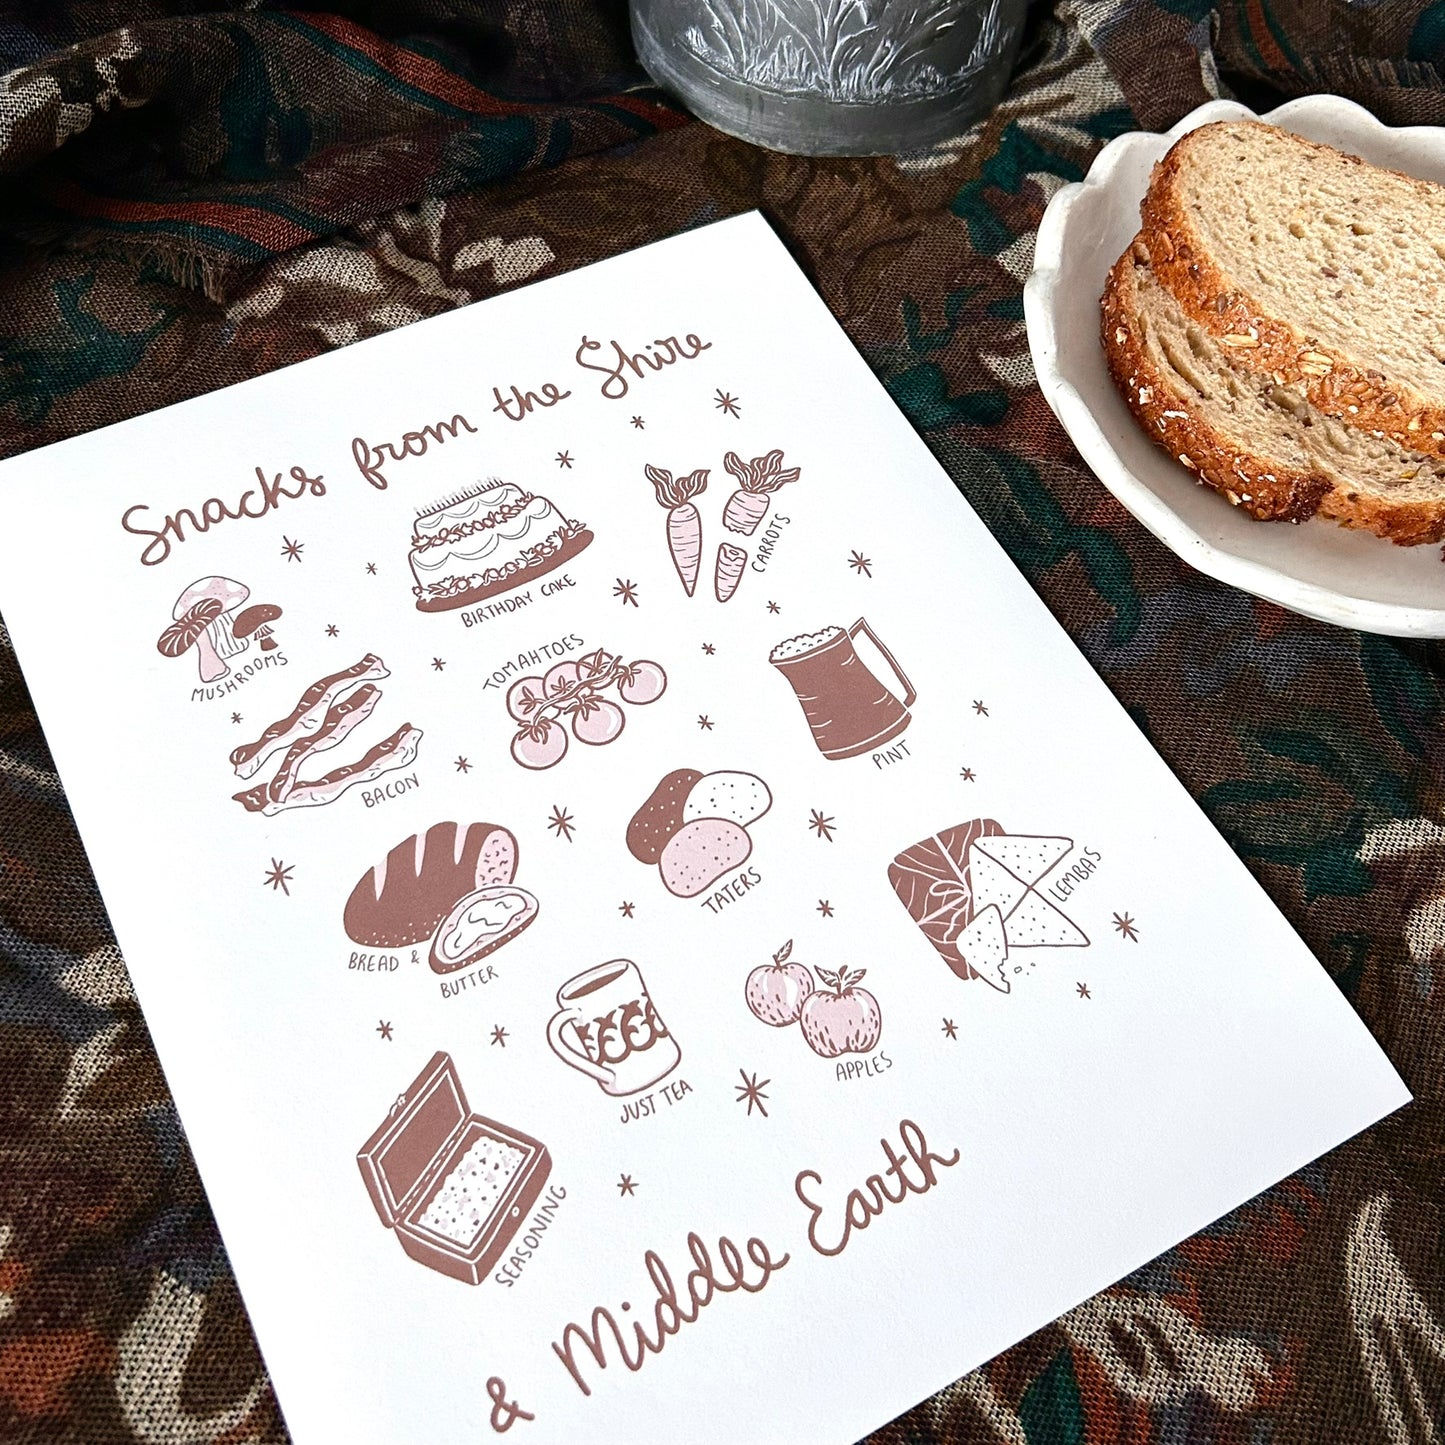 Snacks from the Shire
MUSHROOMS
BIRTHDAY CAKE
CARROTS
BACON
TOMAHTOES
PINT
BREAD &
BUTTER
TATERS
LEMBAS
SEASONING
JUST TEA
APPLES
& Middle Earth